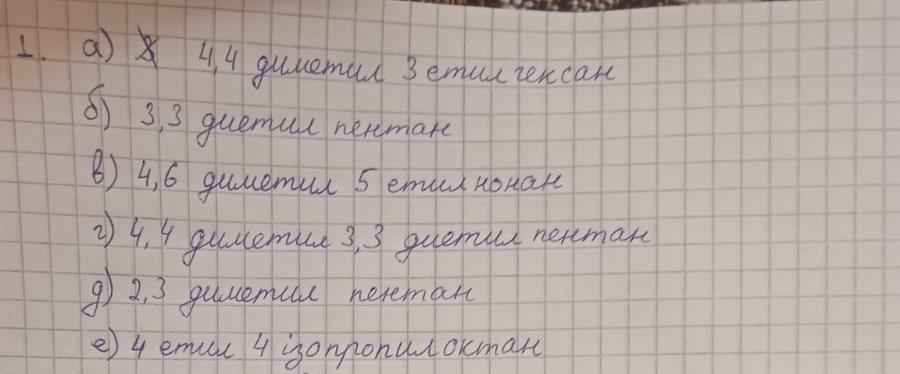 1. а) 4,4 диметил 3 етилгексан
б) 3,3 диетил пентан
в) 4,6 диметил 5 етилнонан
г) 4,4 диметил 3,3 диетил пентан
д) 2,3 диметил пентан
е) 4 етил 4 ізопропилоктан